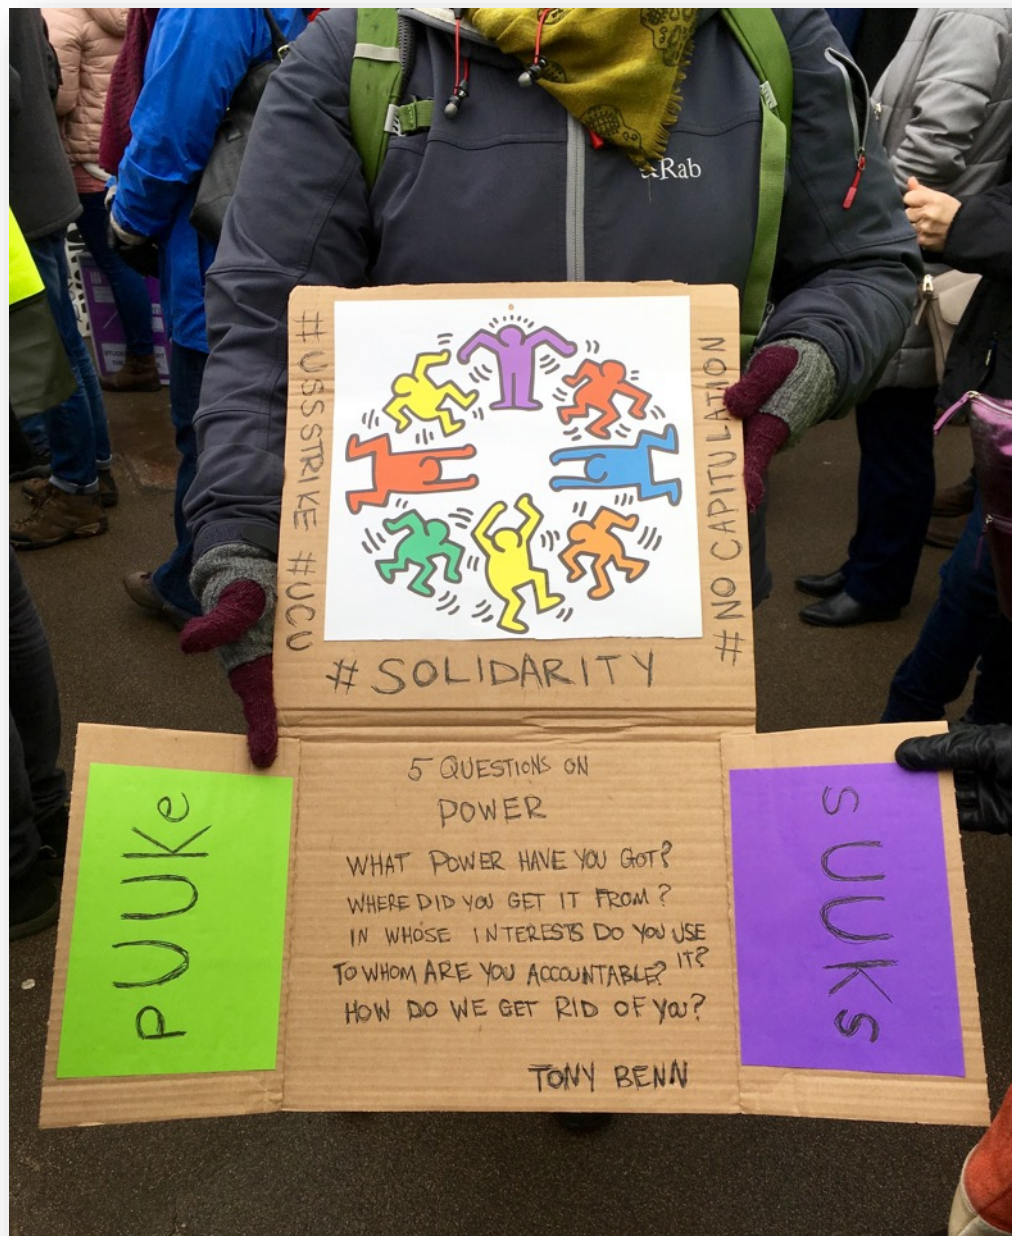 Rab
#USSSTRIKE #UCU
#NO CAPITULATION
#SOLIDARITY
PUUKe
5 QUESTIONS ON
POWER
WHAT POWER HAVE YOU GOT?
WHERE DID YOU GET IT FROM?
IN WHOSE INTERESTS DO YOU USE
IT?
TO WHOM ARE YOU ACCOUNTABLE?
HOW DO WE GET RID OF YOU?
TONY BENN
SUUKS